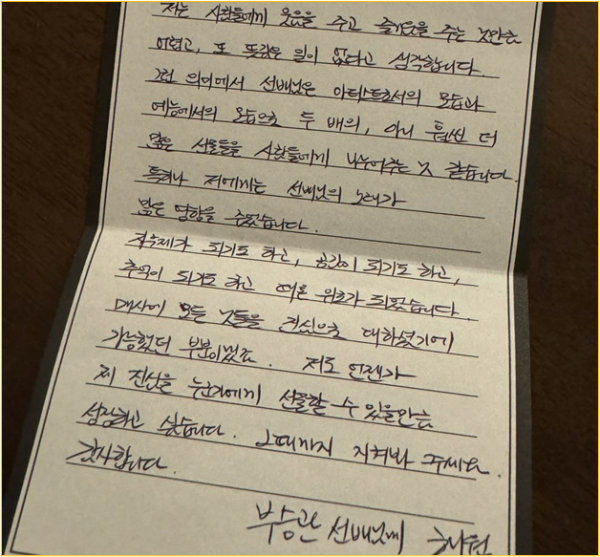 저는 사람들에게 웃음을 주고 즐거움을 주는 것만큼
어렵고, 또 뜻깊은 일이 없다고 생각합니다
그런 의미에서 선배님은 아티스트로서의 모습과
예능에서의 모습으로 두 배의, 아니 훨씬 더
많은 선물들을 사람들에게 나누어주는 것 같습니다.
특히나 저에게는 선배님의 노래가
많은 영향을 주었습니다.
기폭제가 되기도 하고, 공감이 되기도 하고,
추억이 되기도 하고 때론 위로가 되었습니다.
매사에 모든 것들을 진심으로 대하셨기에
가능했던 부분이겠죠. 저도 언젠가
제 진심을 누군가에게 선물할 수 있을만큼
성장하고 싶습니다. 그때까지 지켜봐 주세요.
감사합니다.
부승관 선배님께